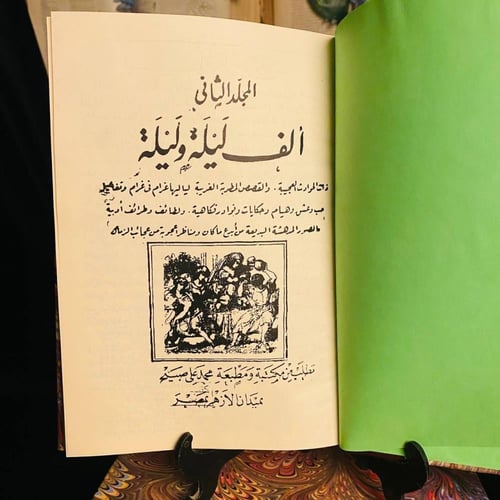 المجلد الثاني
ألف ليلة وليلة
ذات الحوادث العجيبة. والقصص المطربة الغريبة لياليها غرام فى غرام وتفاصيل
حب وعشق وهيام وحكايات ونوادر فكاهية. ولطائف وطرائف أدبية
بالصور المدهشة البديعة من أبدع ماكان ومناظر أعجوبة من عجائب الزمان
تطلب من مكتبة ومطبعة محمد على صبيح
بميدان الأزهر بمصر